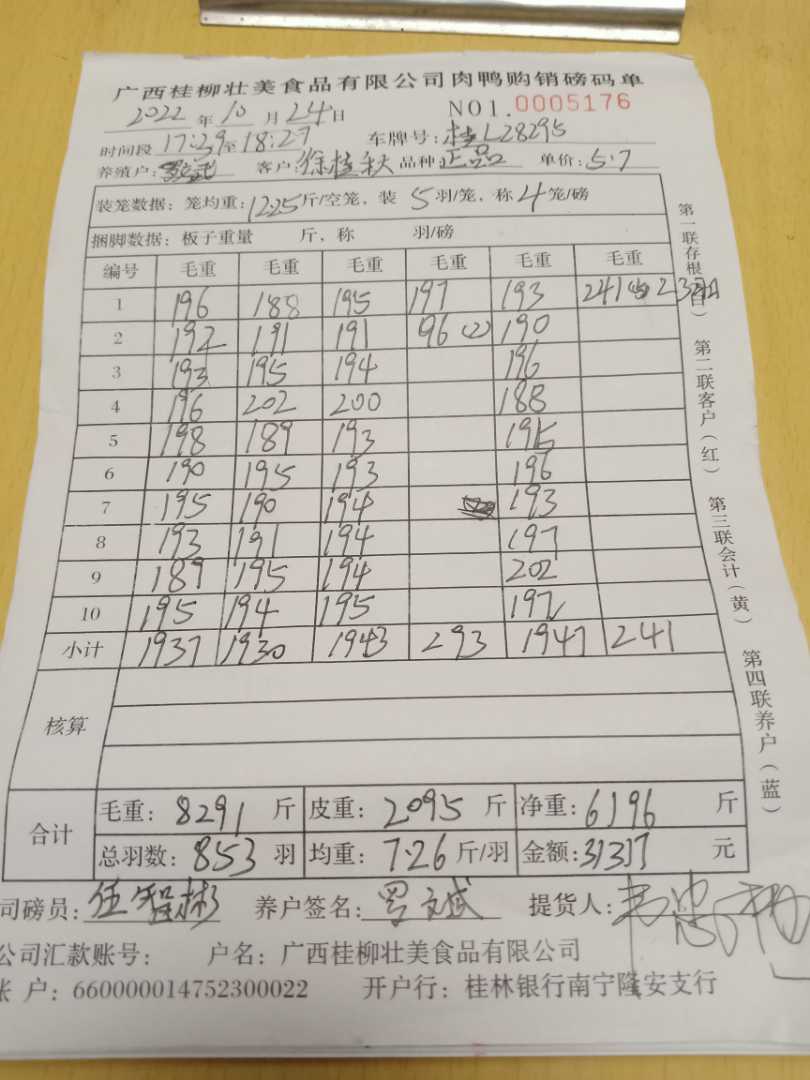 广西桂柳壮美食品有限公司肉鸭购销磅码单
2022 年 10 月 24 日 NO1.0005176
时间段 17:29 至 18:27 车牌号: 桂L28295
养殖户: 客户: 徐桂秋 品种 正品 单价: 5.7
装笼数据: 笼均重: 12.25 斤/空笼, 装 5 羽/笼, 称 4 笼/磅
捆脚数据: 板子重量 斤, 称 羽/磅
编号 毛重 毛重 毛重 毛重 毛重 毛重
1 196 188 195 197 193 241
2 192 191 191 96(2) 190
3 193 195 194 196
4 196 202 200 188
5 198 189 193 195
6 190 195 193 196
7 195 190 194 193
8 193 191 194 197
9 189 195 194 202
10 195 194 195 197
小计 1937 1930 1943 293 1947 241
核算
合计
毛重: 8291 斤 皮重: 2095 斤 净重: 6196 斤
总羽数: 853 羽 均重: 7.26 斤/羽 金额: 31317 元
司磅员: 伍智彬 养户签名: 罗文斌 提货人:
公司汇款账号: 户名: 广西桂柳壮美食品有限公司
账 户: 660000014752300022 开户行: 桂林银行南宁隆安支行
第一联存根(白)
第二联客户(红)
第三联会计(黄)
第四联养户(蓝)